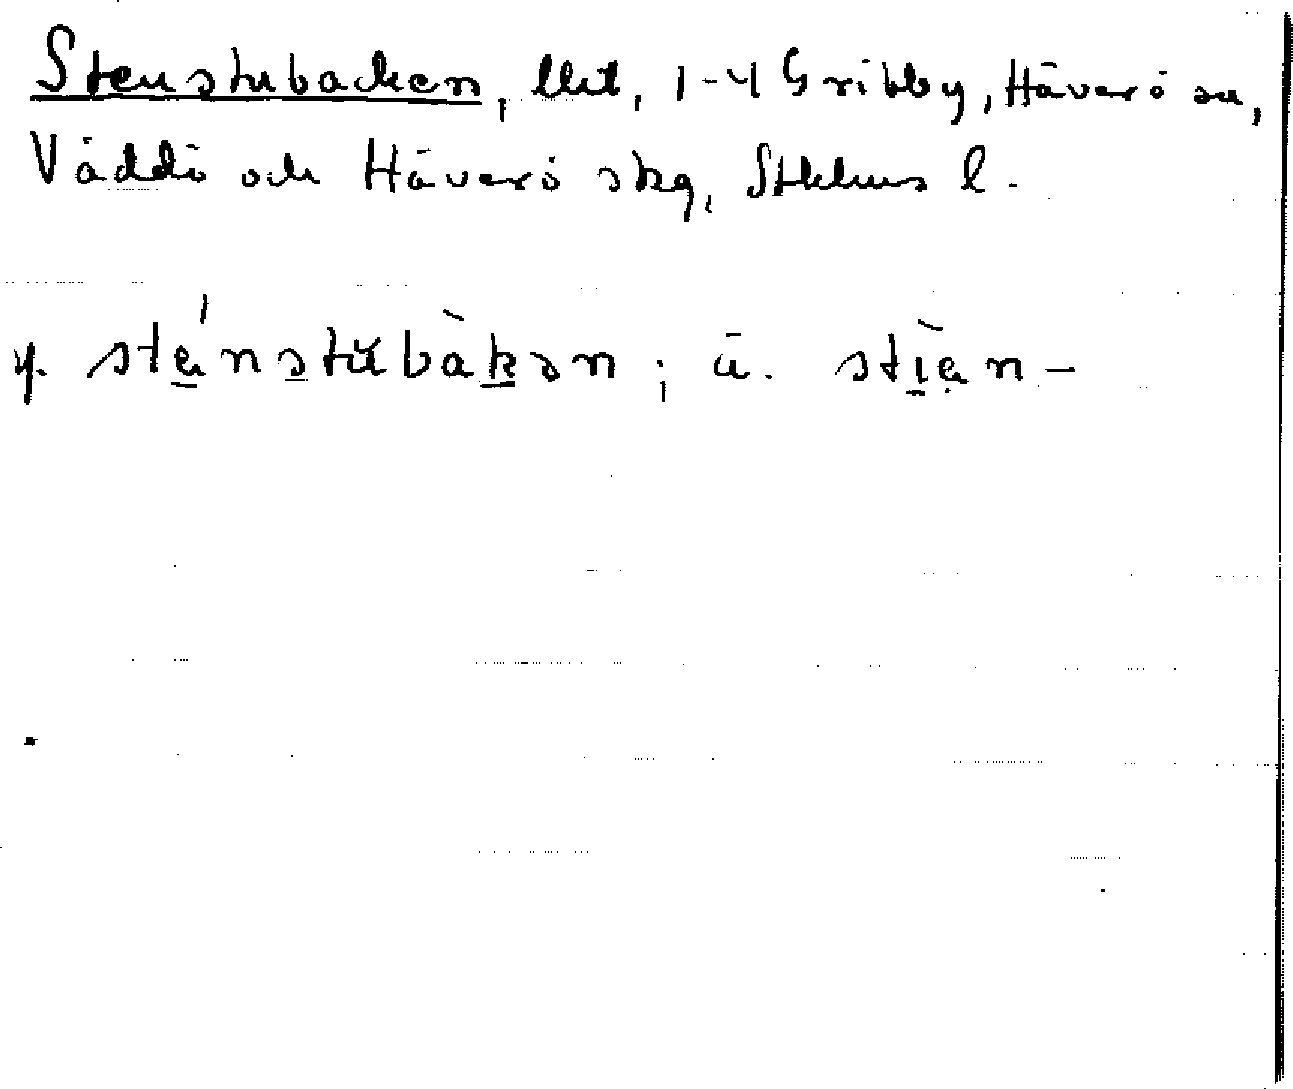 Stenstubacken, lht, 1-4 Gribby, Häverö sn,
Väddö och Häverö skg, Sthlms l.
y. sténstŭbàkən; ä. stìen-